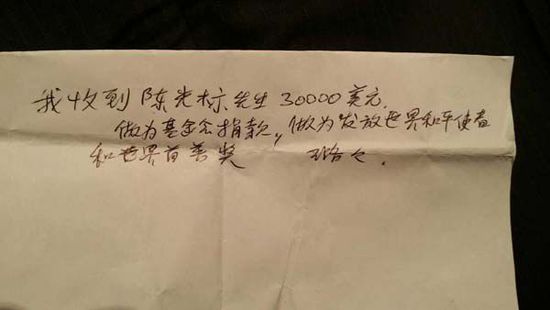 我收到陈光标先生30000美元.
做为基金会捐款,做为发放世界和平使者
和世界首善奖 璐々.